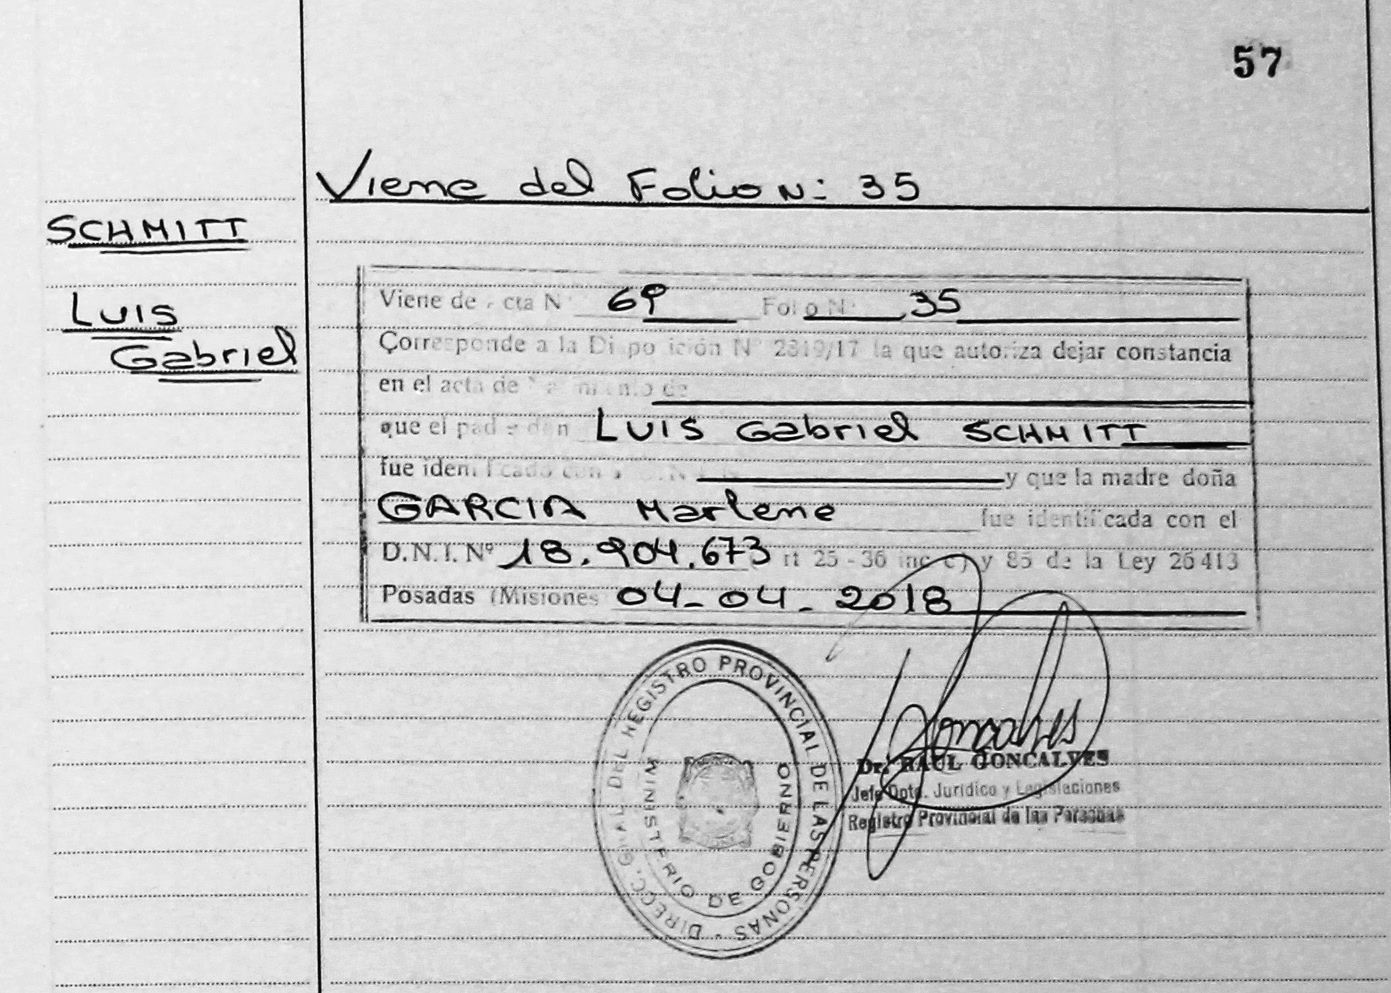 57
Viene del Folio N: 35
SCHMITT
Luis
Gabriel
Viene de cta N° 69 Folio N° 35
Corresponde a la Disposición N° 2319/17 la que autoriza dejar constancia
en el acta de de
que el padre don LUIS Gabriel SCHMITT
fue identificado con y que la madre doña
GARCIA Marlene fue identificada con el
D.N.I. Nº 18.904.673 rt 25 - 36 inc c) y 85 de la Ley 26413
Posadas (Misiones 04-04-2018
DIRECC. GRAL. DEL REGISTRO PROVINCIAL DE LAS PERSONAS
MINISTERIO DE GOBIERNO
Goncalves
Dr. RAUL GONCALVES
Jefe Dpto. Jurídico y Legislaciones
Registro Provincial de las Personas